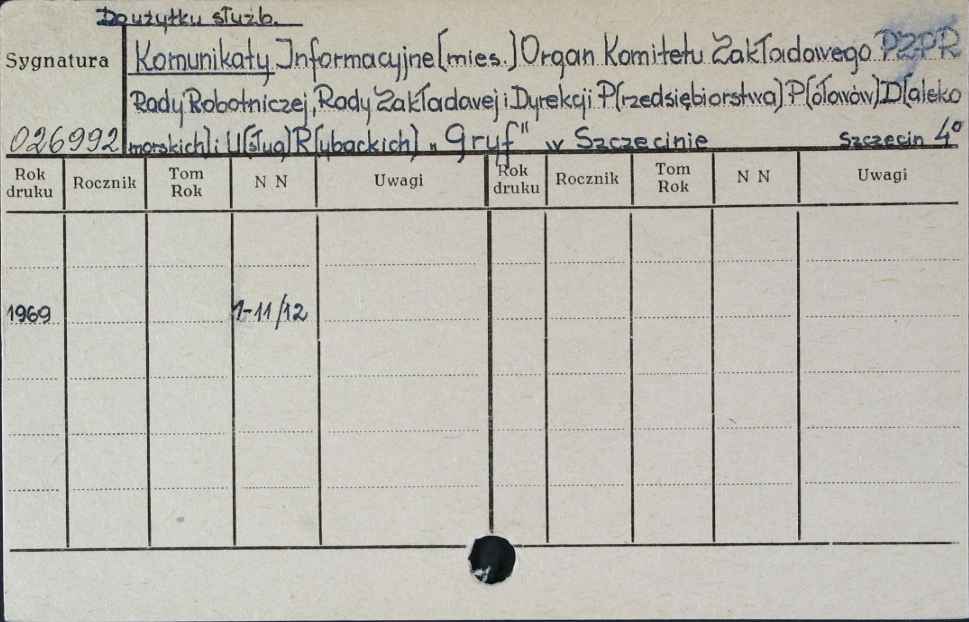 Do użytku służb.
Sygnatura
Komunikaty Informacyjne [mies.] Organ Komitetu Zakładowego PZPR
Rady Robotniczej, Rady Zakładowej i Dyrekcji P(rzedsiębiorstwa) P(ołowów) D(aleko
026992 morskich) i U(sług) R(ybackich) „Gryf" w Szczecinie Szczecin 4°
Rok druku Rocznik Tom Rok N N Uwagi Rok druku Rocznik Tom Rok N N Uwagi
1969 1-11/12